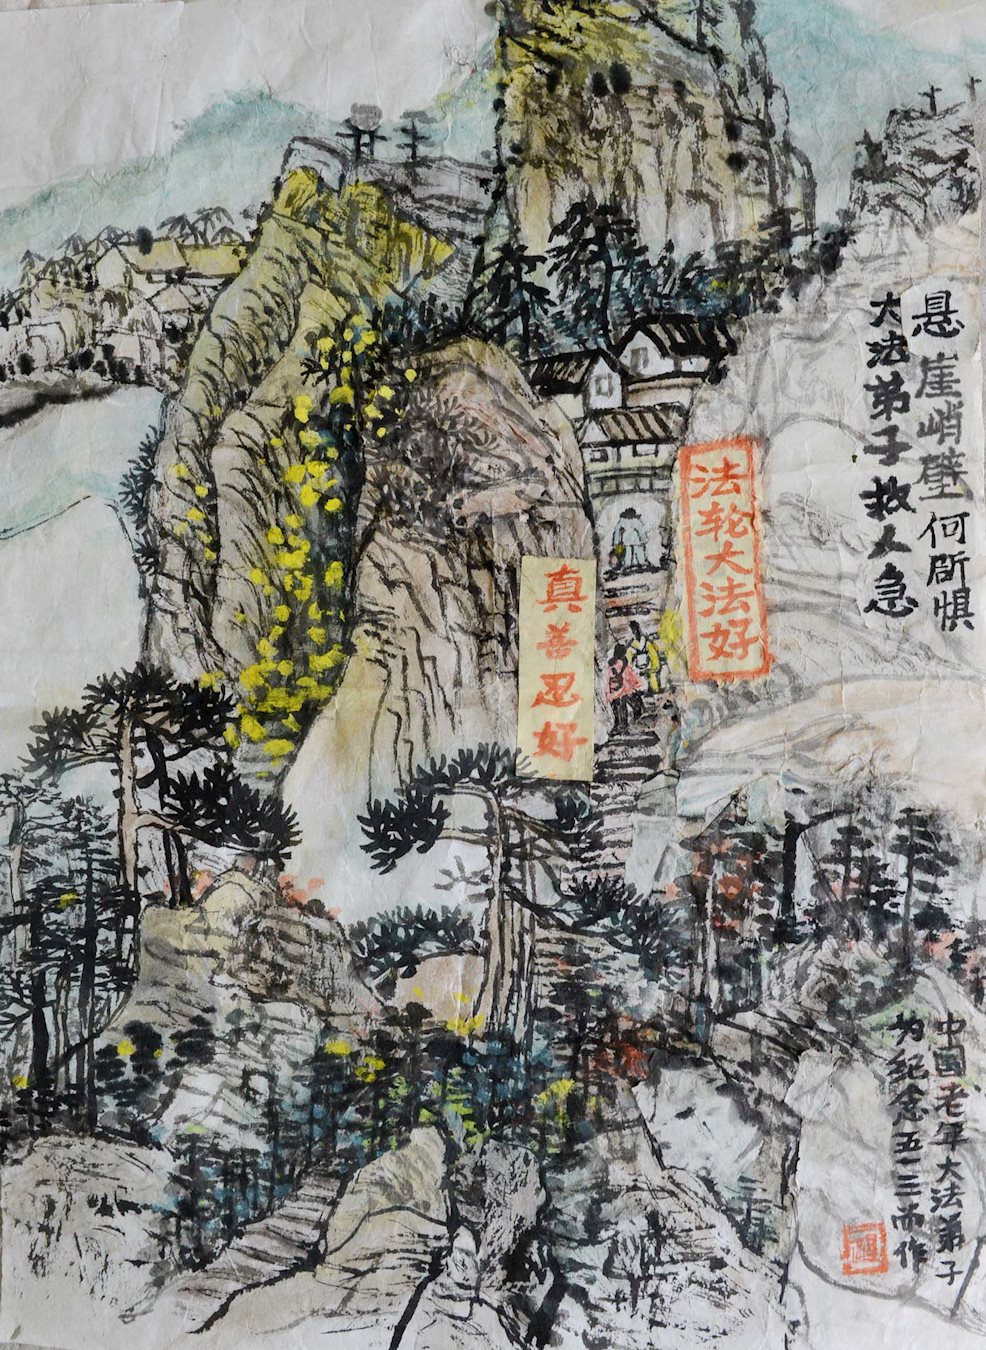 悬崖峭壁何所惧
大法弟子救人急
法轮大法好
真善忍好
中國老年大法弟子
为纪念五一三而作